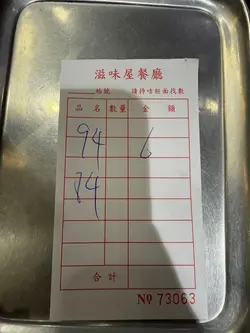 滋味屋餐廳
枱號 請持咭柜面找數
品名 數量 金額
94 6
84
合計
Nº 73063